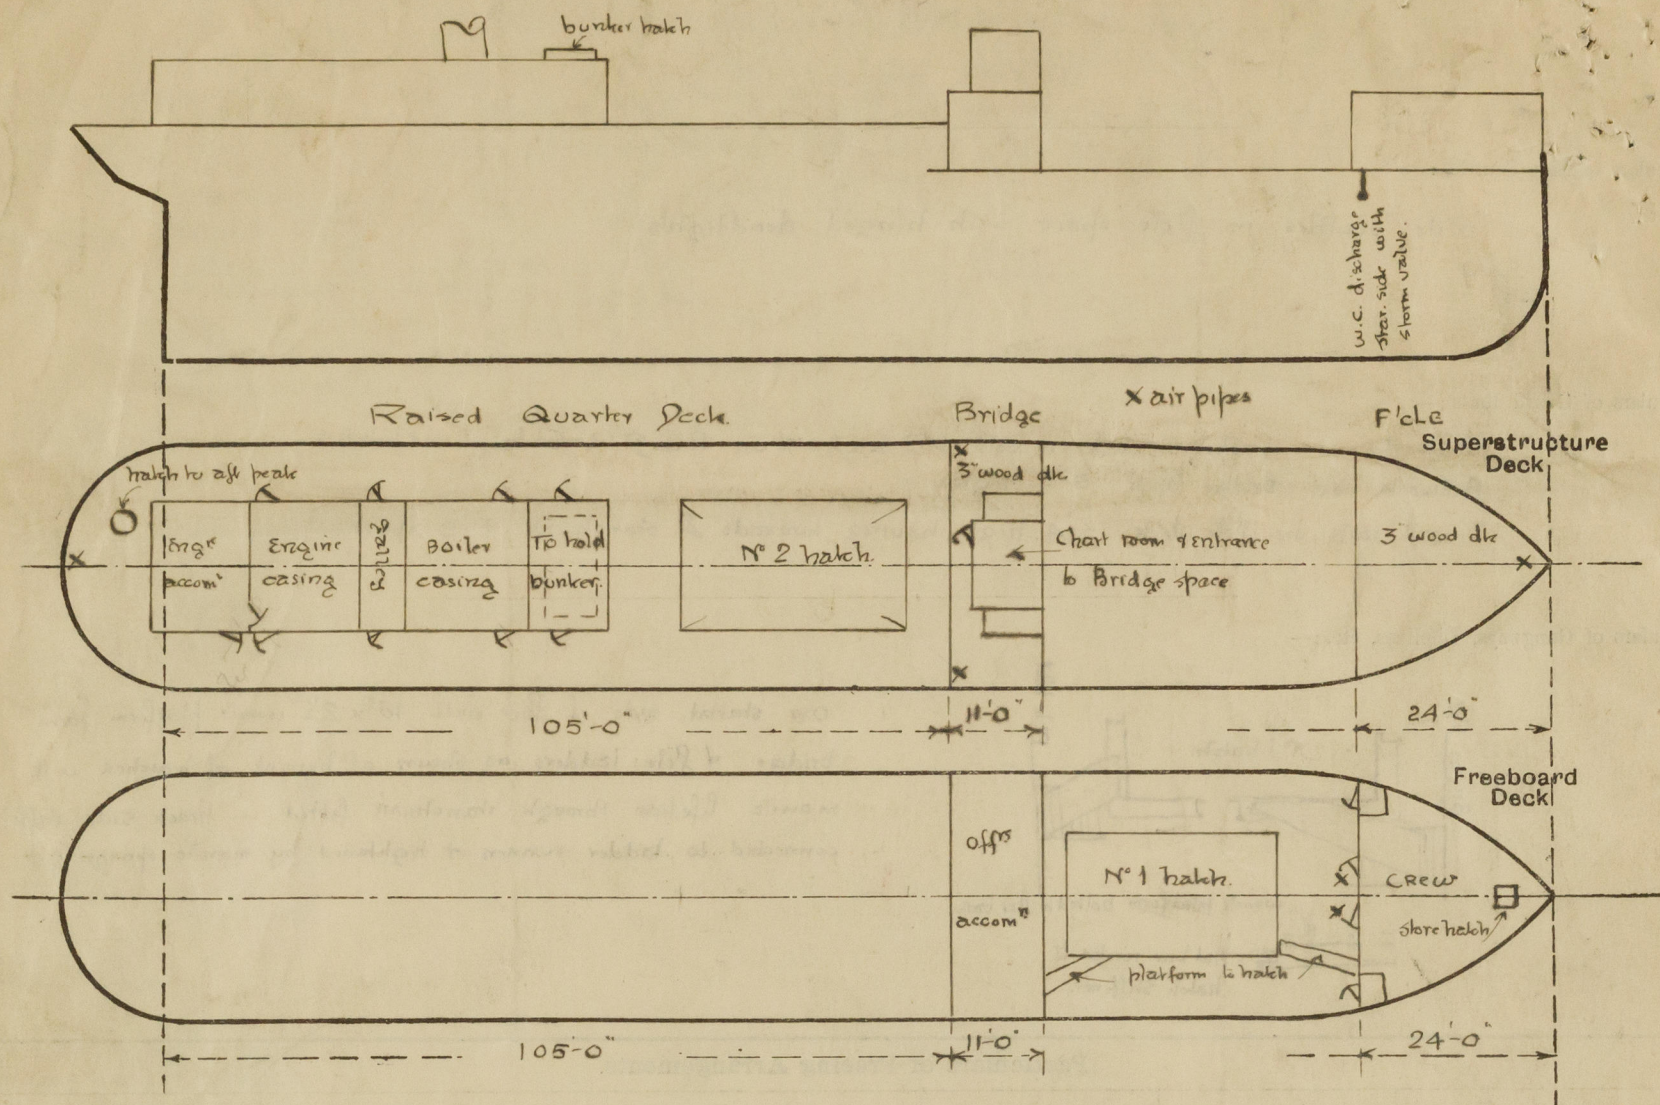 bunker hatch
W.C. discharge
star. side with
storm valve.
Raised Quarter Deck.
Bridge
x air pipes
F'cLE
Superstructure
Deck
hatch to aft peak
3" wood dk.
Engr
accomn
Engine
casing
Galley
Boiler
casing
To hold
bunker.
No 2 hatch.
Chart room & entrance
to Bridge space
3" wood dk
105'-0"
11'-0"
24'-0"
Freeboard
Deck
Offrs
accomn
No 1 hatch.
CREW
store hatch
platform to hatch
105'-0"
11'-0"
24'-0"